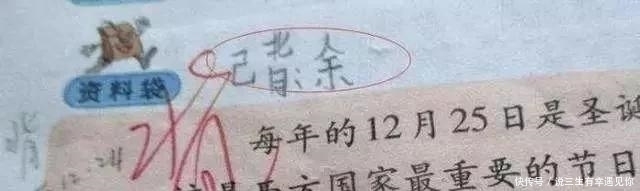 余
资料袋
背
12.24
每年的12月25日是圣诞
是西方国家最重要的节日
快传号 / 说三生有幸遇见你